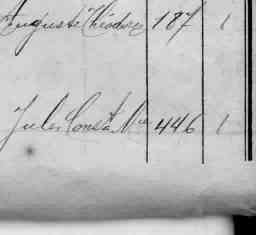 Auguste Théodore 187 1
Jules Const. Mie 446 1